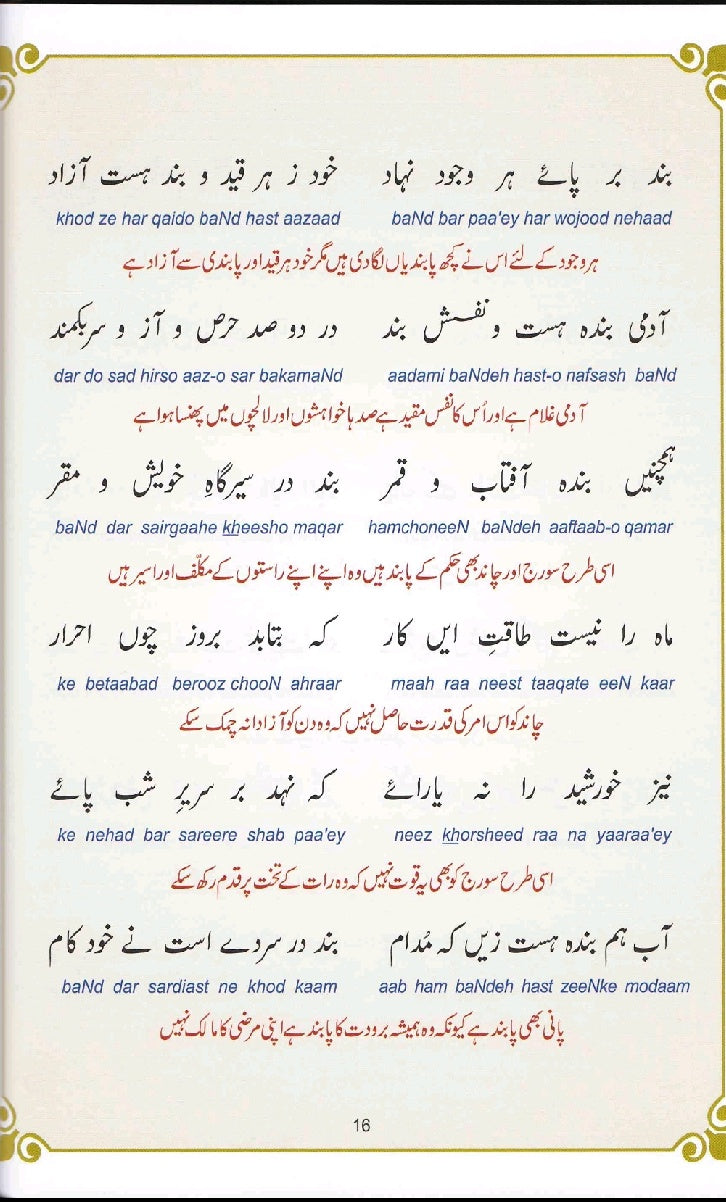 بند بر پائے ہر وجود نہاد خود ز ہر قید و بند ہست آزاد
khod ze har qaido baNd hast aazaad baNd bar paa'ey har wojood nehaad
ہر وجود کے لئے اس نے کچھ پابندیاں لگا دی ہیں مگر خود ہر قید اور پابندی سے آزاد ہے
آدمی بندہ ہست و نفسش بند در دو صد حرص و آز و سر بکمند
dar do sad hirso aaz-o sar bakamaNd aadami baNdeh hast-o nafsash baNd
آدمی غلام ہے اور اُس کا نفس مقید ہے صدہا خواہشوں اور لالچوں میں پھنسا ہوا ہے
ہمچنیں بندہ آفتاب و قمر بند در سیرگاہِ خویش و مقر
baNd dar sairgaahe kheesho maqar hamchoneeN baNdeh aaftaab-o qamar
اسی طرح سورج اور چاند بھی حکم کے پابند ہیں وہ اپنے اپنے راستوں کے مکلّف اور اسیر ہیں
ماہ را نیست طاقتِ ایں کار کہ بتابد بروز چوں احرار
ke betaabad berooz chooN ahraar maah raa neest taaqate eeN kaar
چاند کو اس امر کی قدرت حاصل نہیں کہ وہ دن کو آزادانہ چمک سکے
نیز خورشید را نہ یارائے کہ نہد بر سریرِ شب پائے
ke nehad bar sareere shab paa'ey neez khorsheed raa na yaaraa'ey
اسی طرح سورج کو بھی یہ قوت نہیں کہ وہ رات کے تخت پر قدم رکھ سکے
آب ہم بندہ ہست زیں کہ مُدام بند در سردے است نے خود کام
baNd dar sardiast ne khod kaam aab ham baNdeh hast zeeNke modaam
پانی بھی پابند ہے کیونکہ وہ ہمیشہ برودت کا پابند ہے اپنی مرضی کا مالک نہیں
16